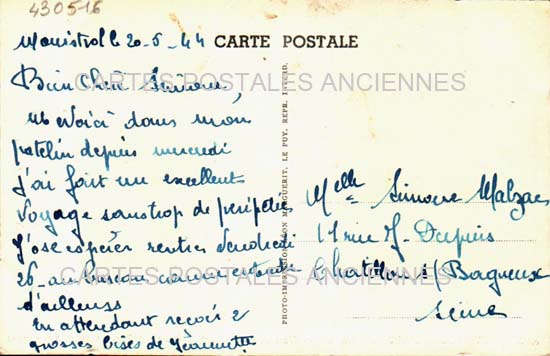 430516
Monistrol le 20-5-44
CARTE POSTALE
Bien Chère Simone,
me voici dans mon
patelin depuis mercredi
j'ai fait un excellent
voyage sans trop de péripéties
J'ose espérer rentrer Vendredi
26 au bureau
d'ailleurs
En attendant reçois 2
grosses bises de Jeannette
PHOTO-IMPRESSION LÉON MARGUERIT, LE PUY, REPR. INTERD.
Melle Simone Malzac
17 rue J. Dupuis
Chatillon s/ Bagneux
Seine
CARTES POSTALES ANCIENNES
CARTES POSTALES ANCIENNES